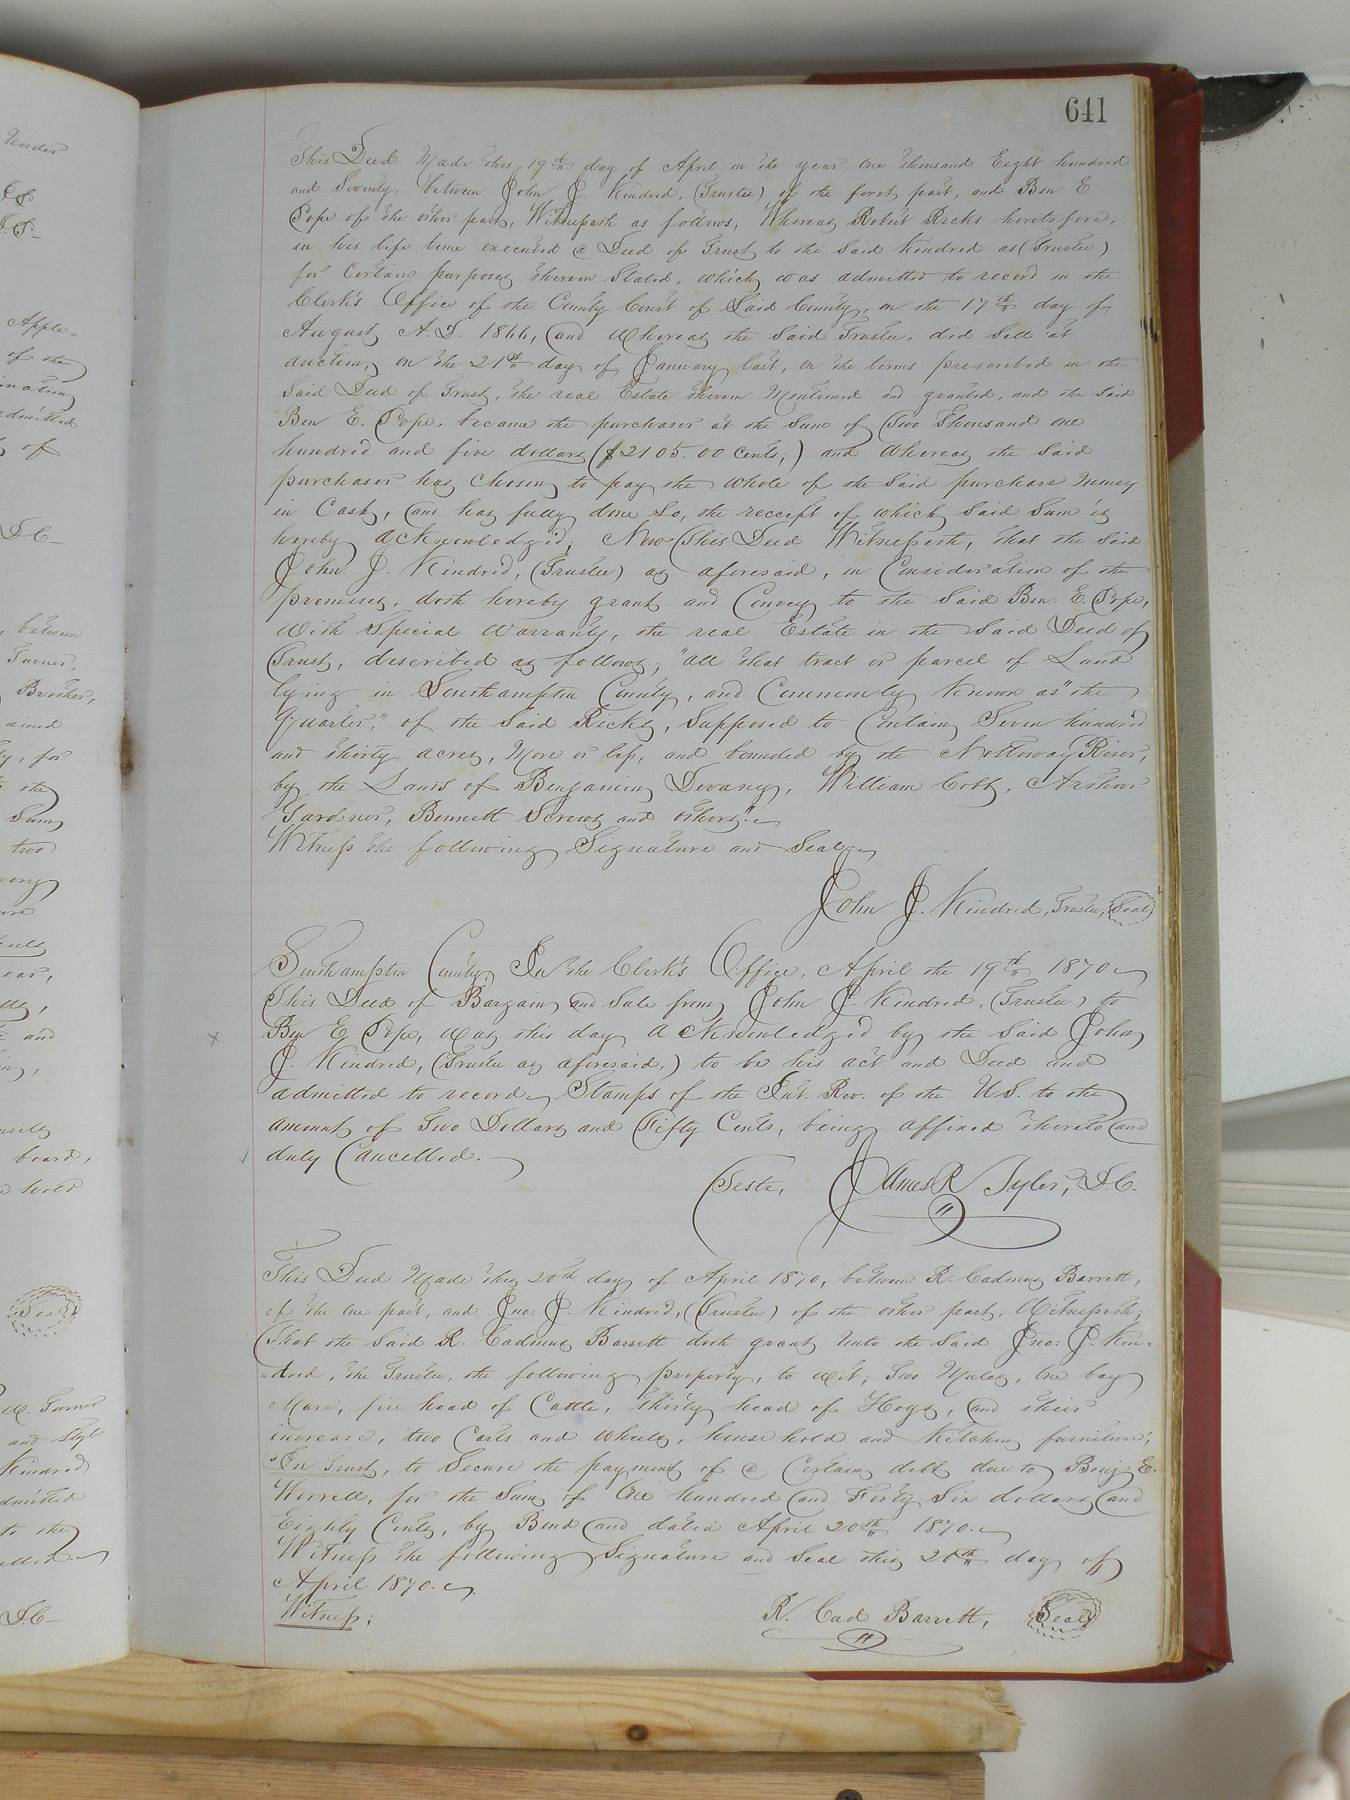 641
This Deed Made this 19th day of April in the year One thousand Eight hundred
and Seventy between John J. Kindred, (Trustee) of the first part, and Ben E
Pope of the other part, Witnesseth as follows; Whereas Robert Ricks heretofore,
in his life time executed a Deed of Trust to the Said Kindred as (Trustee)
for Certain purposes therein Stated, which was admitted to record in the
Clerk's Office of the County Court of Said County, on the 17th day of
August A.D. 1866, and Whereas the Said Trustee, did Sell at
auction, on the 21st day of January last, on the terms prescribed in the
Said Deed of Trust, the real Estate therein Mentioned and granted, and the Said
Ben E. Pope, became the purchaser at the Sum of Two Thousand one
hundred and five dollars ($2105.00 Cents;) and Whereas the Said
purchaser has Chosen to pay the Whole of the Said purchase Money
in Cash, and has fully done So, the receipt of which Said Sum is
hereby acknowledged; Now This Deed Witnesseth, that the Said
John J. Kindred, (Trustee) as aforesaid, in Consideration of the
premises, doth hereby grant and Convey to the Said Ben E. Pope,
With Special Warranty, the real Estate in the Said Deed of
Trust, described as follows; "All that tract or parcel of Land
lying in Southampton County, and Commonly Known as "the
Quarter," of the Said Ricks, Supposed to Contain Seven hundred
and thirty acres, More or less, and bounded by the Nottoway River,
by the Lands of Benjamin Devany, William Cobb, Arthur
Gardner, Bennett Screws and others".
Witness the following Signature and Seal
John J. Kindred, Trustee, Seal
Southampton County, In the Clerk's Office, April the 19th 1870
This Deed of Bargain and Sale from John J. Kindred, (Trustee) to
Ben E. Pope, was this day acknowledged by the Said John
J. Kindred, (Trustee as aforesaid,) to be his act and Deed and
admitted to record, Stamps of the Int. Rev. of the U.S. to the
amount of Two Dollars and Fifty Cents, being affixed thereto and
duly Cancelled.
Teste, James R Tyler, D.C.
This Deed Made this 20th day of April 1870, between R. Cadmus Barrett,
of the one part, and Jno: J. Kindred, (Trustee) of the other part, Witnesseth;
That the Said R. Cadmus Barrett doth grant unto the Said Jno: J. Kin-
-dred, the Trustee, the following property, to wit; Two Mules, One bay
Mare, five head of Cattle, thirty head of Hogs, and their
increase, two Carts and wheels, house hold and Kitchen furniture;
In Trust, to Secure the payment of a Certain debt due to Benj: E.
Worrell, for the Sum of One hundred and Forty Six dollars and
Eighty Cents, by Bond and dated April 20th 1870.
Witness the following Signature and Seal this 20th day of
April 1870.
Witness; R. Cad Barrett, Seal